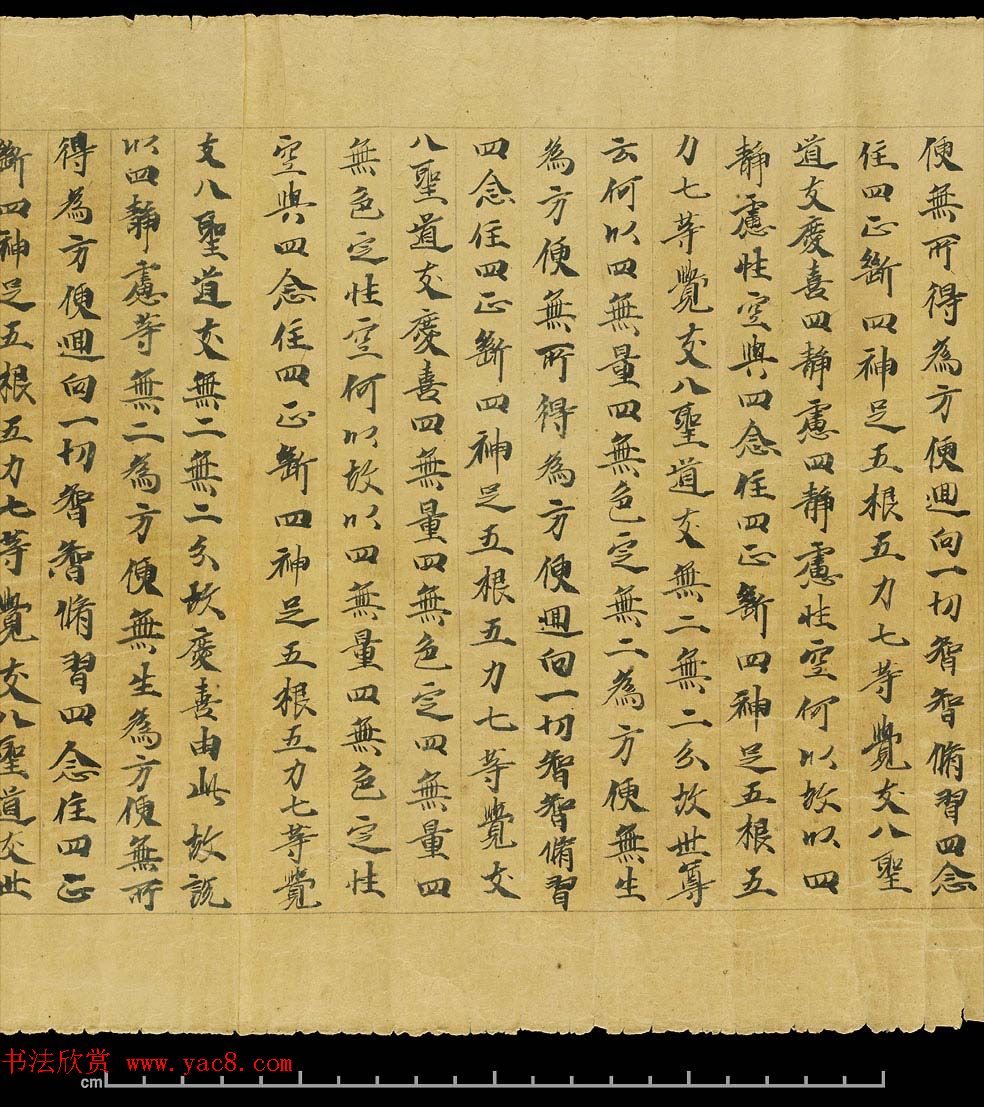 便無所得為方便迴向一切智智脩習四念
住四正斷四神足五根五力七等覺支八聖
道支慶喜四靜慮四靜慮性空何以故以四
靜慮性空與四念住四正斷四神足五根五
力七等覺支八聖道支無二無二分故世尊
云何以四無量四無色定無二為方便無生
為方便無所得為方便迴向一切智智脩習
四念住四正斷四神足五根五力七等覺支
八聖道支慶喜四無量四無色定四無量四
無色定性空何以故以四無量四無色定性
空與四念住四正斷四神足五根五力七等覺
支八聖道支無二無二分故慶喜由此故說
以四靜慮等無二為方便無生為方便無所
得為方便迴向一切智智脩習四念住四正
斷四神足五根五力七等覺支八聖道支世
书法欣赏 www.yac8.com
cm